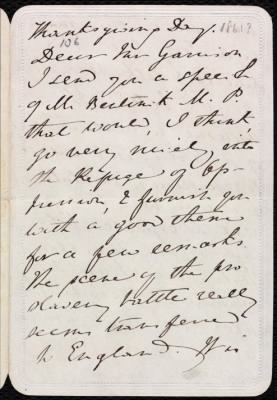 Thanksgiving Day.
1861?
106
Dear Mr Garrison
I send you a speech
of Mr Bentinck M. P.
that would, I think,
go very nicely into
the Refuge of Op-
pression, & furnish you
with a good theme
for a few remarks.
The scene of the pro
slavery battle really
seems transferred
to England.